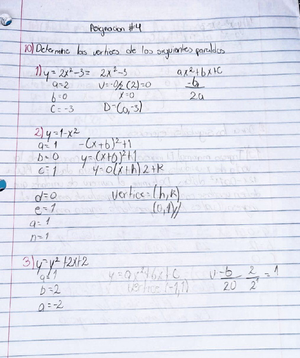 Asignacion #4
10) Determine los vertices de las siguientes parabolas
1) y = 2x² - 3 = 2x² - 3 ax² + bx + c
a = 2 v = -0/2 (2) = 0 -b
b = 0 x = 0 2a
c = -3 D = (0, -3)
2) y = 1 - x²
a = 1 -(x + b)² + 1
b = 0 y = (x + 0)² + 1
c = 1 y = a(x + h)2 + k
d = 0 vertice = (h, k)
e = 1 (0, 1)
a = 1
n = 1
3) y = y² + 2x + 2
a = 1 y = ax² + bx + c v = -b 2 = 1
b = 2 vertice (-1, 1) 20 2
a = -2